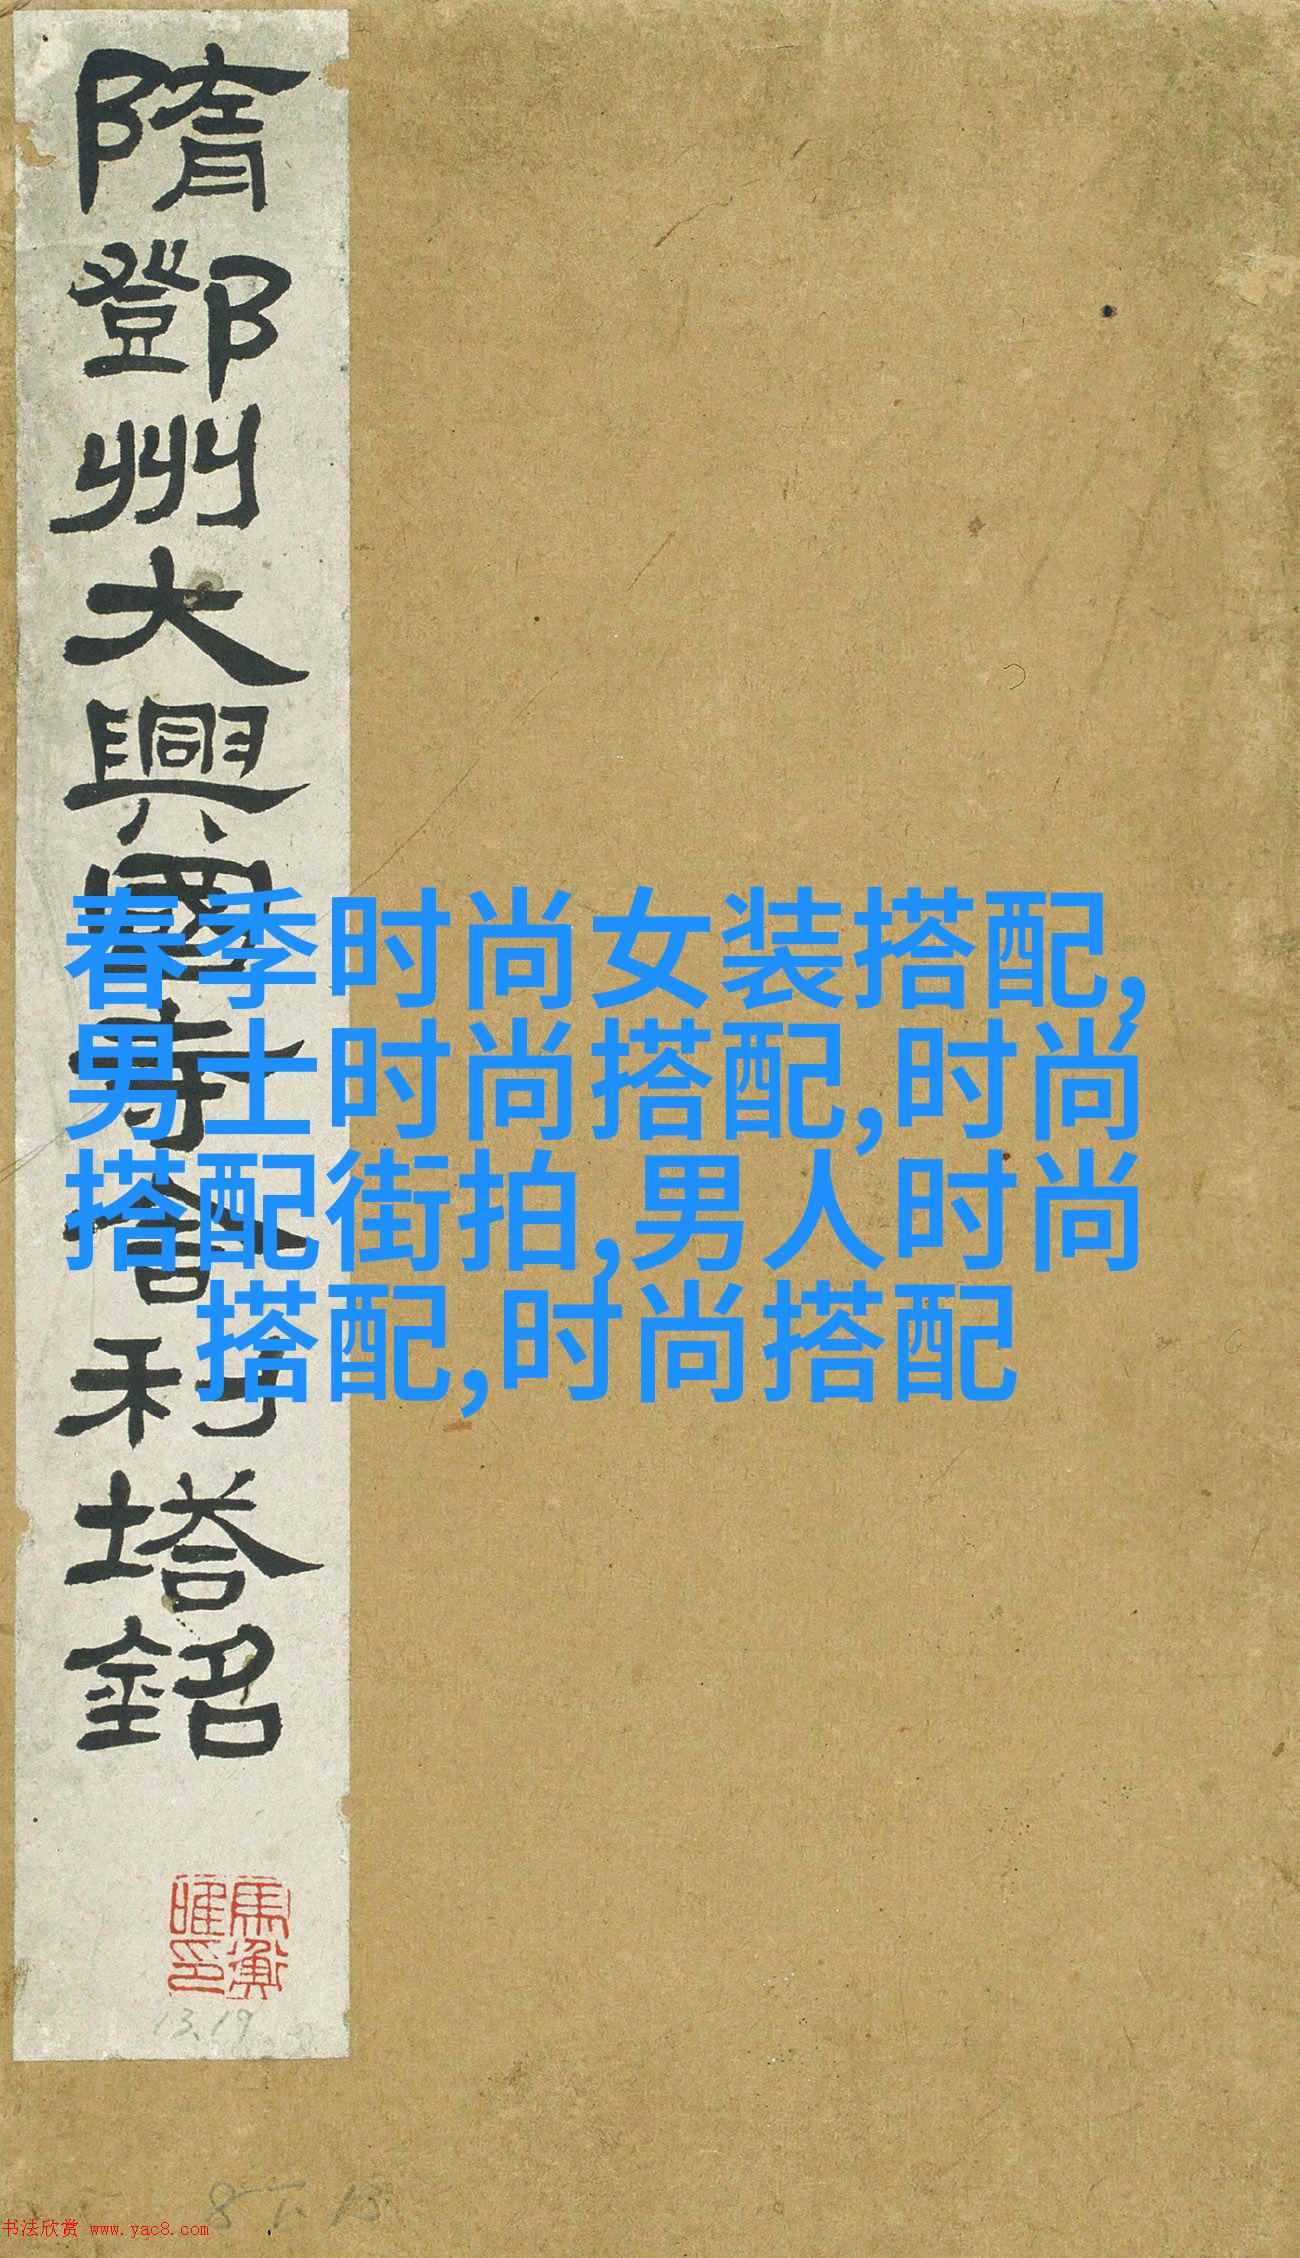 隋鄧州大興國寺舍利塔銘
春季时尚女装搭配,
男士时尚搭配,时尚
搭配街拍,男人时尚
搭配,时尚搭配
馬衡
暀印
13.19
8下13
书法欣赏 www.yac8.com